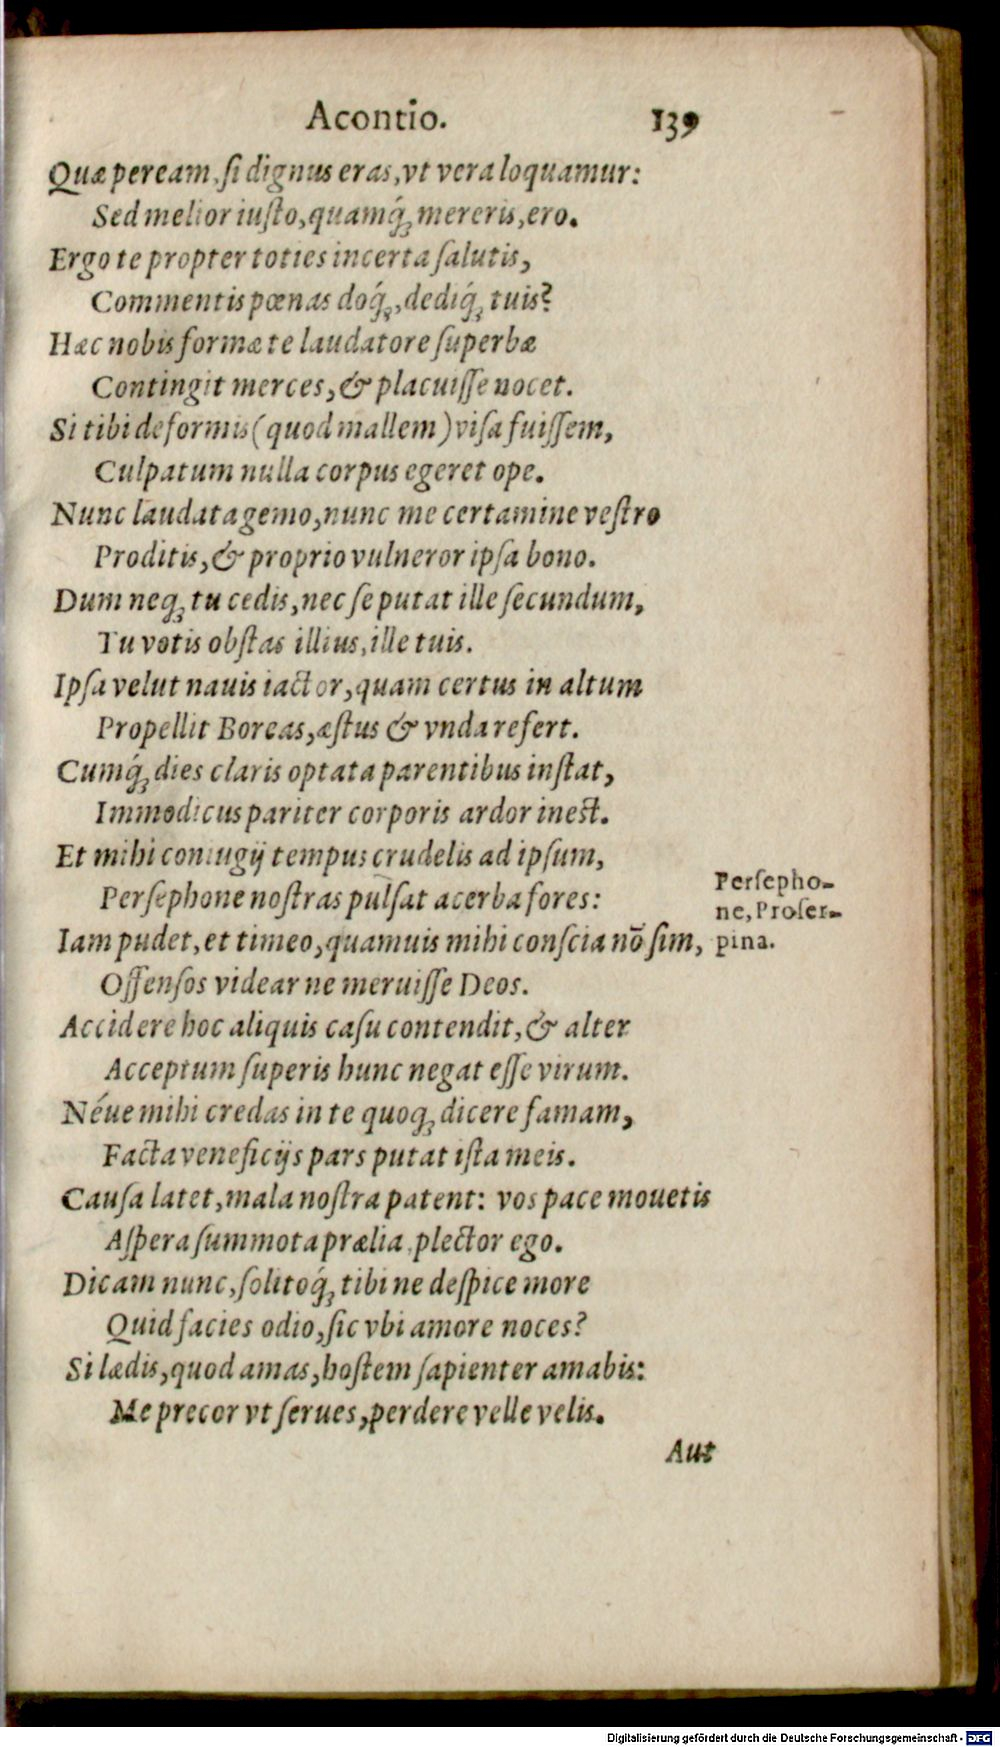 Acontio. 139
Quæ peream, ſi dignus eras, vt vera loquamur:
Sed melior iuſto, quamq́ꝫ mereris, ero.
Ergo te propter toties incerta ſalutis,
Commentis pœnas doq́ꝫ, dediq́ꝫ tuis?
Hæc nobis formæ te laudatore ſuperbæ
Contingit merces, & placuiſſe nocet.
Si tibi deformis (quod mallem) viſa fuiſſem,
Culpatum nulla corpus egeret ope.
Nunc laudata gemo, nunc me certamine veſtro
Proditis, & proprio vulneror ipſa bono.
Dum neqꝫ tu cedis, nec ſe putat ille ſecundum,
Tu votis obſtas illius, ille tuis.
Ipſa velut nauis iactor, quam certus in altum
Propellit Boreas, æſtus & vnda refert.
Cumq́ꝫ dies claris optata parentibus inſtat,
Immodicus pariter corporis ardor ineſt.
Et mihi coniugij tempus crudelis ad ipſum,
Perſephone noſtras pulſat acerba fores:
Iam pudet, et timeo, quamuis mihi conſcia nõ ſim,
Offenſos videar ne meruiſſe Deos.
Accidere hoc aliquis caſu contendit, & alter
Acceptum ſuperis hunc negat eſſe virum.
Néue mihi credas in te quoqꝫ dicere famam,
Facta veneficijs pars putat iſta meis.
Cauſa latet, mala noſtra patent: vos pace mouetis
Aſpera ſummota prælia, plector ego.
Dicam nunc, ſolitoq́ꝫ tibi ne deſpice more
Quid facies odio, ſic vbi amore noces?
Si lædis, quod amas, hoſtem ſapienter amabis:
Me precor vt ſerues, perdere velle velis.
Aut
Perſepho-
ne, Proſer-
pina.
Digitalisierung gefördert durch die Deutsche Forschungsgemeinschaft - DFG